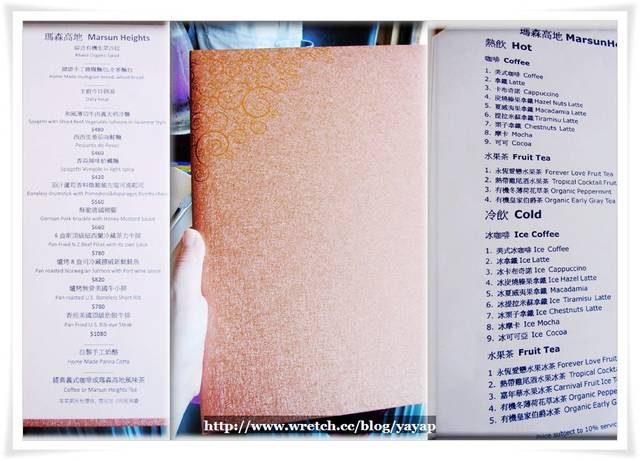 瑪森高地 Marsun Heights
綜合有機生菜沙拉
Mixed Organic Salad
Home Made multigrain bread, wheat bread
主廚今日例湯
Daily Soup
和風薄切牛肉義大利冷麵
Spagetti with Sliced Beef, Vegetable, Japanese Style
$480
Pescuito de Rosso
$460
香蒜辣味蛤蠣麵
Spagetti Vongole in light spicy
$420
$560
酥脆德國豬腳
German Pork Knuckle with Honey Mustard Sauce
$660
Pan Fried N.Z Beef Fillet with its own juice
$780
爐烤8盎司冷藏挪威新鮮鮭魚
Pan roasted Norwegian Salmon with Port wine sauce
$820
爐烤無骨美國牛小排
Pan roasted U.S. Boneless Short Rib
$780
香煎美國頂級肋眼牛排
Pan Fried U.S. Rib-eye Steak
$1080
自製手工奶酪
Home Made Panna Cotta
經典義式咖啡或瑪森高地風味茶
Coffee or Marsun Heights Tea
瑪森高地 MarsunHe
熱飲 Hot
咖啡 Coffee
1. 美式咖啡 Coffee
2. 拿鐵 Latte
3. 卡布奇諾 Cappuccino
4. 炭燒榛果拿鐵 Hazel Nuts Latte
5. 夏威夷果拿鐵 Macadamia Latte
6. 提拉米蘇拿鐵 Tiramisu Latte
7. 栗子拿鐵 Chestnuts Latte
8. 摩卡 Mocha
9. 可可 Cocoa
水果茶 Fruit Tea
1. 永恆愛戀水果茶 Forever Love Fruit Tea
2. 熱帶雞尾酒水果茶 Tropical Cocktail Fruit
3. 有機冬薄荷花草茶 Organic Peppermint
4. 有機皇家伯爵茶 Organic Early Gray Tea
冷飲 Cold
冰咖啡 Ice Coffee
1. 美式冰咖啡 Ice Coffee
2. 冰拿鐵 Ice Latte
3. 冰卡布奇諾 Ice Cappuccino
4. 冰炭燒榛果拿鐵 Ice Hazel Latte
5. 冰夏威夷果拿鐵 Ice Macadamia
6. 冰提拉米蘇拿鐵 Ice Tiramisu Latte
7. 冰栗子拿鐵 Ice Chestnuts Latte
8. 冰摩卡 Ice Mocha
9. 冰可可亞 Ice Cocoa
水果茶 Fruit Tea
1 永恆愛戀水果冰茶 Forever Love Fruit
2. 熱帶雞尾酒水果冰茶 Tropical Cocktail
3. 嘉年華水果冰茶 Carnival Fruit Ice T
4. 有機冬薄荷花草冰茶 Organic Peppermi
5. 有機皇家伯爵冰茶 Organic Early Gr
Price subject to 10% servic
http://www.wretch.cc/blog/yayap